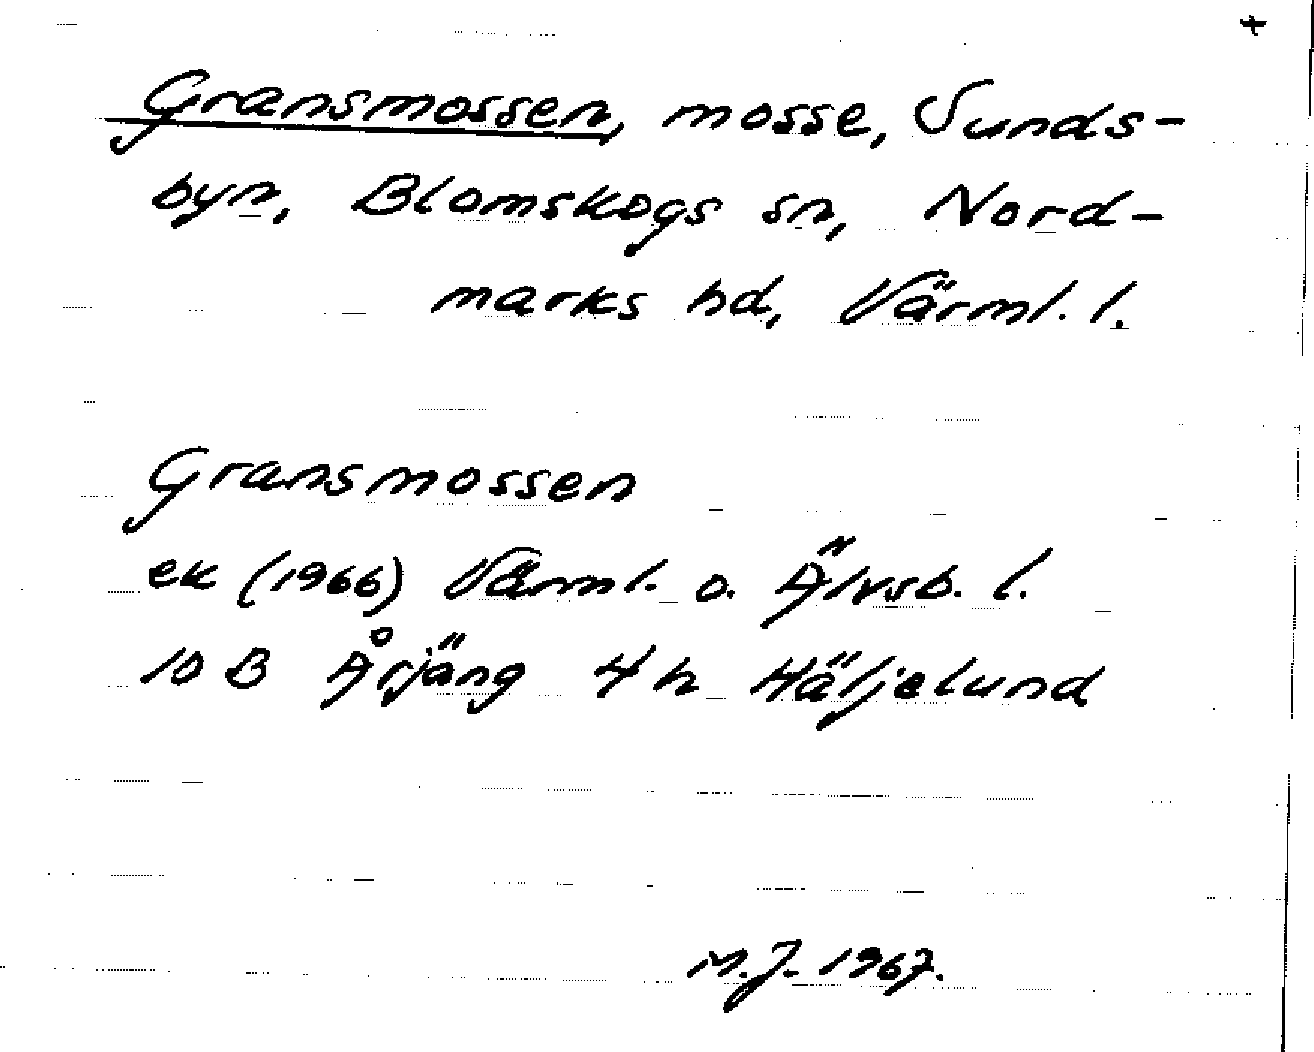 +
Gransmossen, mosse, Sunds-
byn, Blomskogs sn, Nord-
marks hd, Värml. l.
Gransmossen
ek (1966) Värml. o. Älvsb. l.
10 B Årjäng 4 h Häljelund
M.J. 1967.